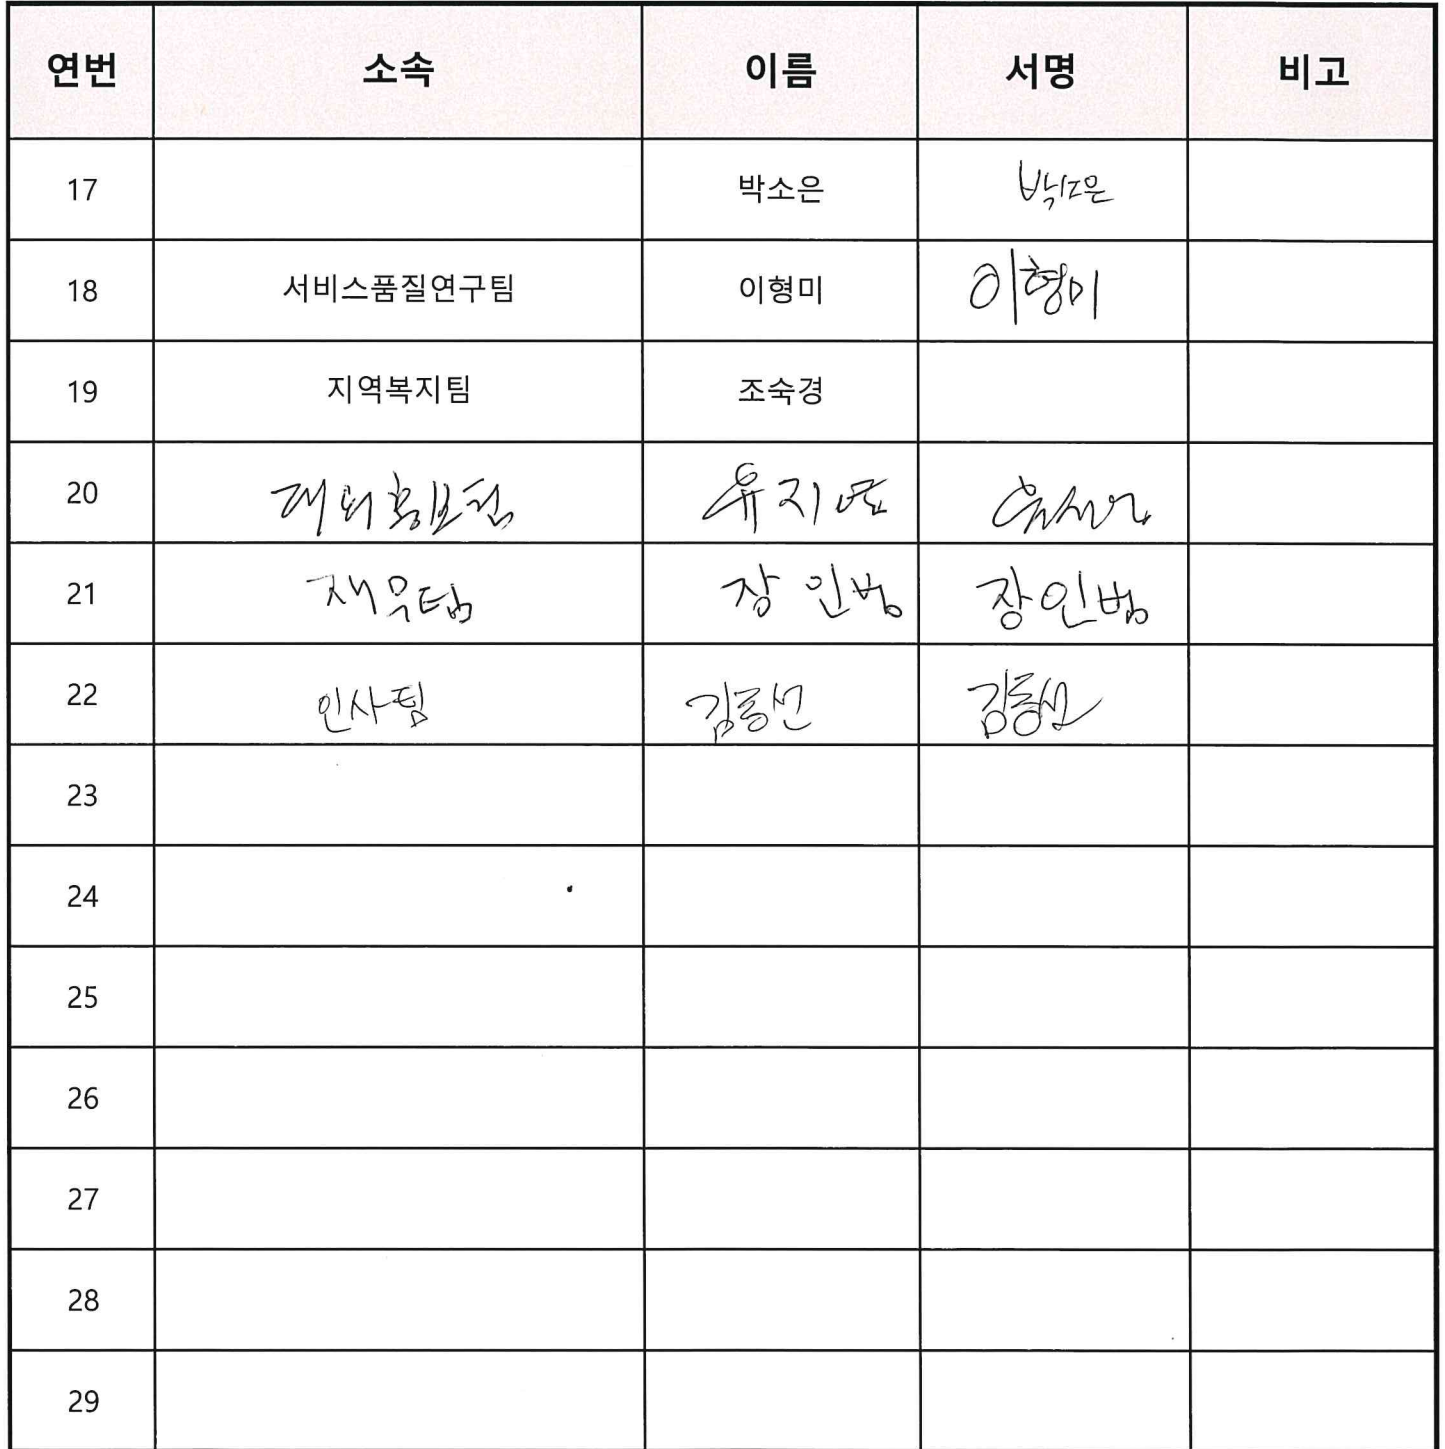 연번 소속 이름 서명 비고
17 박소은 박소은
18 서비스품질연구팀 이형미 이형미
19 지역복지팀 조숙경
20 대외홍보팀 유지연
21 재무팀 장인범 장인범
22 인사팀 김동선 김동선
23
24
25
26
27
28
29